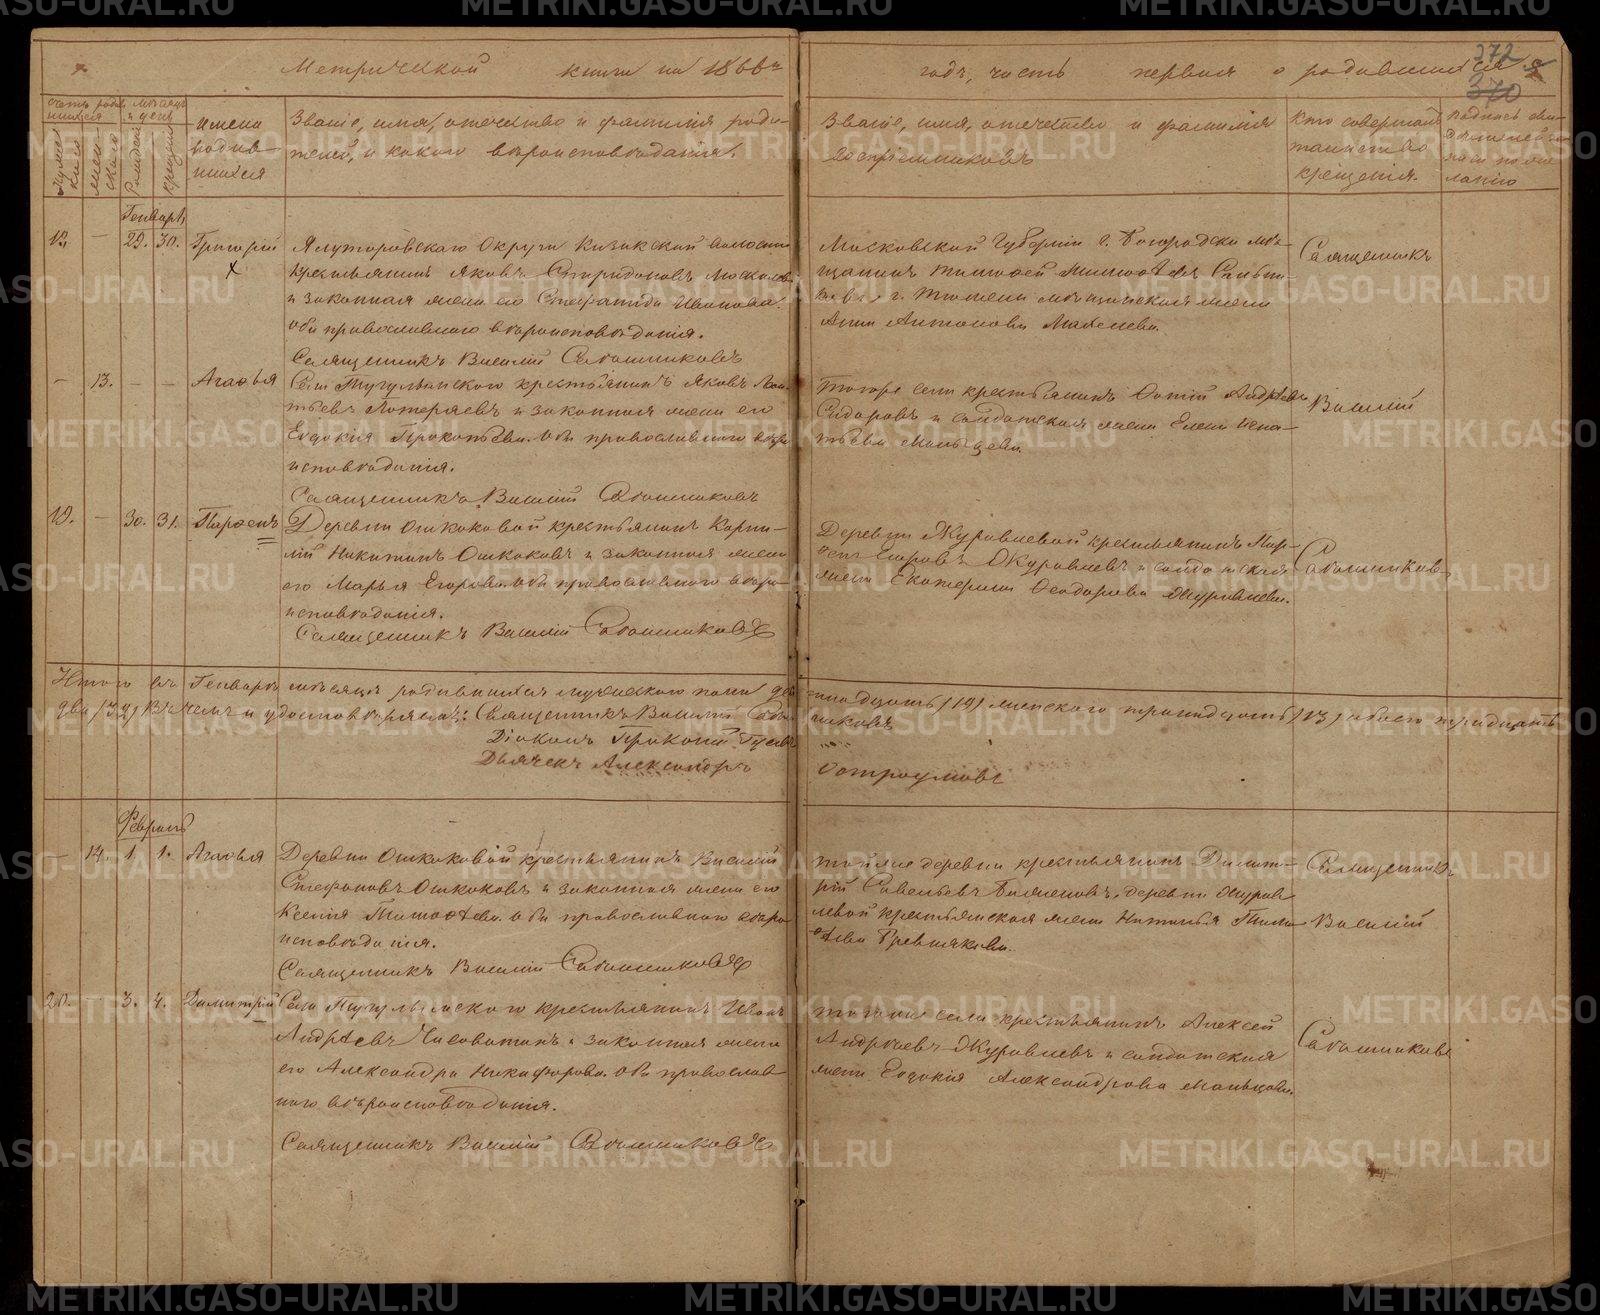 Метрической книги на 1866й
годъ, часть первая о родившихся.
372
370
счетъ родив-
шихся
мѣсяцъ
и день
мужес-
каго
жен-
скаго
Рожденія
крещенія
Имена
родив-
шихся
Званіе, имя, отечество и фамилія роди-
телей, и какого вѣроисповѣданія.
Званіе, имя, отечество и фамилія
воспріемниковъ
Кто совершалъ
таинство
крещенія.
Генварь
29. 30.
Григорій
Ялуторовскаго Округа Кизакской волости
крестьянинъ Яковъ Спиридоновъ
и законная жена его Стефанида Иванова.
оба православнаго вѣроисповѣданія.
Священникъ Василій Сабашниковъ
Московской Губерніи г. Богородска мѣ-
щанинъ Тимофей Тимофѣевъ
г. Тюмени мѣщанская жена
Анна Антонова
Священникъ
- 13. - -
Агафья
Села Тугулымскаго крестьянинъ Яковъ Леон-
тьевъ Потеряевъ и законная жена его
Евдокія Прокопьева. оба православнаго вѣро-
исповѣданія.
Священникъ Василій Сабашниковъ
Тогоже села крестьянинъ Фотій Андрѣевъ
Сидоровъ и солдатская жена Елена Игна-
тьева Мальцева.
Василій
19. - 30. 31.
Парфенъ
Деревни Ошкоковой крестьянинъ Корни-
лій Никитинъ Ошкоковъ и законная жена
его Марья Егорова. оба православнаго вѣро-
исповѣданія.
Священникъ Василій Сабашниковъ
Деревни Журавлевой крестьянинъ Пар-
фенъ Егоровъ Журавлевъ и солдатская
жена Екатерина Феодорова Журавлева.
Сабашниковъ
Итого въ Генварѣ мѣсяцѣ родившихся мужескаго пола де-
вятнадцать (19) женскаго тринадцать (13) обоего тридцать
два (32) Въ чемъ и удостовѣряемъ: Священникъ Василій Саба-
шниковъ
Діаконъ Прокопій Гусевъ
Дьячекъ Александръ
Остроумовъ
Февраль
- 14. 1. 1.
Агафья
Деревни Ошкоковой крестьянинъ Василій
Стефановъ Ошкоковъ и законная жена его
Ксенія Тимофѣева. оба православнаго вѣро-
исповѣданія.
Священникъ Василій Сабашниковъ
той же деревни крестьянинъ Димит-
рій Савельевъ деревни Журав-
левой крестьянская жена Наталья Тимо-
фѣева
Священникъ
Василій
20. - 3. 4.
Димитрій
Села Тугулымскаго крестьянинъ Иванъ
Андрѣевъ и законная жена
его Александра Никифорова. оба православ-
наго вѣроисповѣданія.
Священникъ Василій Сабашниковъ
тогоже села крестьянинъ Алексей
Андрѣевъ Журавлевъ и солдатская
жена Евдокія Александрова Мальцова.
Сабашниковъ
METRIKI.GASO-URAL.RU